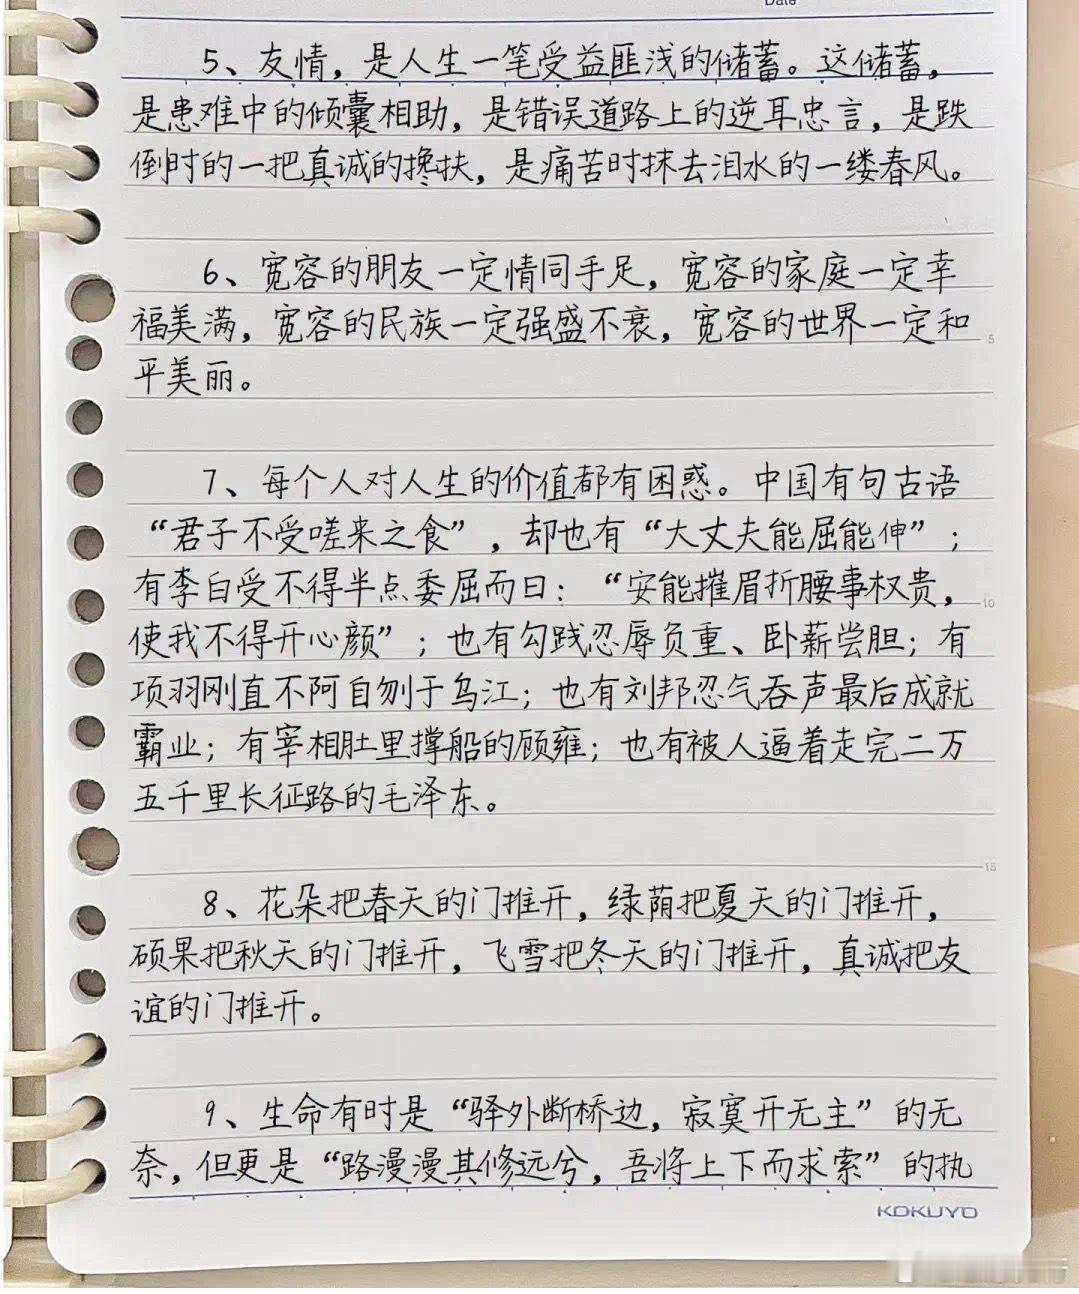 Date
5、友情，是人生一笔受益匪浅的储蓄。这储蓄，
是患难中的倾囊相助，是错误道路上的逆耳忠言，是跌
倒时的一把真诚的搀扶，是痛苦时抹去泪水的一缕春风。
6、宽容的朋友一定情同手足，宽容的家庭一定幸
福美满，宽容的民族一定强盛不衰，宽容的世界一定和
5
平美丽。
7、每个人对人生的价值都有困惑。中国有句古语
“君子不受嗟来之食”，却也有“大丈夫能屈能伸”；
有李白受不得半点委屈而曰：“安能摧眉折腰事权贵，
10
使我不得开心颜”；也有勾践忍辱负重、卧薪尝胆；有
项羽刚直不阿自刎于乌江；也有刘邦忍气吞声最后成就
霸业；有宰相肚里撑船的顾雍；也有被人逼着走完二万
五千里长征路的毛泽东。
15
8、花朵把春天的门推开，绿荫把夏天的门推开，
硕果把秋天的门推开，飞雪把冬天的门推开，真诚把友
谊的门推开。
9、生命有时是“驿外断桥边，寂寞开无主”的无
奈，但更是“路漫漫其修远兮，吾将上下而求索”的执
KOKUYO